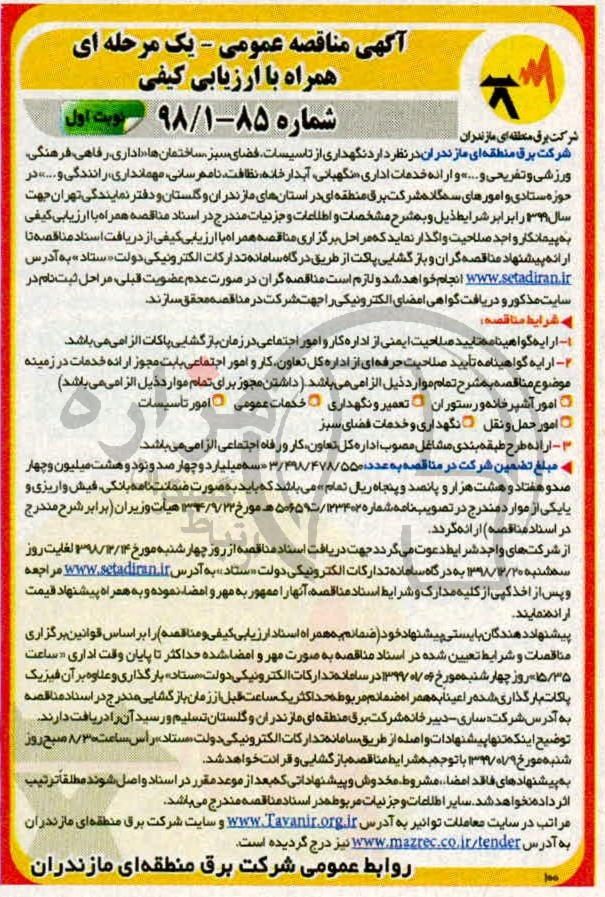 آگهی مناقصه عمومی - یک مرحله ای
همراه با ارزیابی کیفی
شماره ۸۵-۹۸/۱
نوبت اول
شرکت برق منطقه‌ای مازندران
شرکت برق منطقه‌ای مازندران در نظر دارد نگهداری از تاسیسات، فضای سبز، ساختمان ها «اداری، رفاهی، فرهنگی،
ورزشی و تفریحی و...» و ارائه خدمات اداری «نگهبانی، آبدارخانه، نظافت، نامه‌رسانی، مهمانداری، رانندگی و...» در
حوزه ستادی و امورهای سه‌گانه شرکت برق منطقه‌ای در استان‌های مازندران و گلستان و دفتر نمایندگی تهران جهت
سال ۱۳۹۹ را برابر شرایط ذیل و به شرح مشخصات و اطلاعات و جزئیات مندرج در اسناد مناقصه همراه با ارزیابی کیفی
به پیمانکار واجد صلاحیت واگذار نماید که مراحل برگزاری مناقصه همراه با ارزیابی کیفی از دریافت اسناد مناقصه تا
ارائه پیشنهاد مناقصه گران و بازگشایی پاکت از طریق درگاه سامانه تدارکات الکترونیکی دولت «ستاد» به آدرس
www.setadiran.ir انجام خواهد شد و لازم است مناقصه گران در صورت عدم عضویت قبلی، مراحل ثبت نام در
سایت مذکور و دریافت گواهی امضای الکترونیکی را جهت شرکت در مناقصه محقق سازند.
شرایط مناقصه:
۱- ارایه گواهینامه تایید صلاحیت ایمنی از اداره کار و امور اجتماعی در زمان بازگشایی پاکات الزامی می باشد.
۲- ارایه گواهینامه تأیید صلاحیت حرفه ای از اداره کل تعاون، کار و امور اجتماعی بابت مجوز ارائه خدمات در زمینه
موضوع مناقصه به شرح تمام موارد ذیل الزامی می باشد. (داشتن مجوز برای تمام موارد ذیل الزامی می باشد)
امور آشپزخانه و رستوران تعمیر و نگهداری خدمات عمومی امور تأسیسات
امور حمل و نقل نگهداری و خدمات فضای سبز
۳- ارائه طرح طبقه بندی مشاغل مصوب اداره کل تعاون، کار و رفاه اجتماعی الزامی می باشد.
مبلغ تضمین شرکت در مناقصه به عدد: ۳/۴۹۸/۴۷۸/۵۵۰ «سه میلیارد و چهار صد و نود و هشت میلیون و چهار
صد و هفتاد و هشت هزار و پانصد و پنجاه ریال تمام» می باشد که باید به صورت ضمانت نامه بانکی، فیش واریزی و
یا یکی از موارد مندرج در تصویب نامه شماره ۱۲۳۴۰۲/ت۵۰۶۵۹ هـ مورخ ۱۳۹۴/۹/۲۲ هیأت وزیران (برابر شرح مندرج
در اسناد مناقصه) ارائه گردد.
از شرکت های واجد شرایط دعوت می گردد جهت دریافت اسناد مناقصه از روز چهارشنبه مورخ ۱۳۹۸/۱۲/۱۴ لغایت روز
سه شنبه ۱۳۹۸/۱۲/۲۰ به درگاه سامانه تدارکات الکترونیکی دولت «ستاد» به آدرس www.setadiran.ir مراجعه
و پس از اخذ کپی از کلیه مدارک و شرایط اسناد مناقصه، آنها را ممهور به مهر و امضاء نموده و به همراه پیشنهاد قیمت
ارائه نمایند.
پیشنهاد دهندگان بایستی پیشنهاد خود (ضمائم به همراه اسناد ارزیابی کیفی و مناقصه) را بر اساس قوانین برگزاری
مناقصات و شرایط تعیین شده در اسناد مناقصه به صورت مهر و امضا شده حداکثر تا پایان وقت اداری «ساعت
۱۵/۳۵» روز چهارشنبه مورخ ۱۳۹۹/۰۱/۰۶ در سامانه تدارکات الکترونیکی دولت «ستاد» بارگذاری و علاوه بر آن فیزیک
پاکات بارگذاری شده را عیناً به همراه ضمائم مربوطه حداکثر یک ساعت قبل از زمان بازگشایی مندرج در اسناد مناقصه
به آدرس شرکت: ساری- دبیرخانه شرکت برق منطقه ای مازندران و گلستان تسلیم و رسید آن را دریافت دارند.
توضیح اینکه تنها پیشنهادات واصله از طریق سامانه تدارکات الکترونیکی دولت «ستاد» رأس ساعت ۸/۳۰ صبح روز
شنبه مورخ ۱۳۹۹/۰۱/۹ با توجه به شرایط مناقصه بازگشایی و قرائت خواهد شد.
به پیشنهادهای فاقد امضاء، مشروط، مخدوش و پیشنهاداتی که بعد از موعد مقرر در اسناد واصل شوند مطلقاً ترتیب
اثر داده نخواهد شد. سایر اطلاعات و جزئیات مربوطه در اسناد مناقصه مندرج می باشد.
مراتب در سایت معاملات توانیر به آدرس www.Tavanir.org.ir و سایت شرکت برق منطقه ای مازندران
به آدرس www.mazrec.co.ir/tender نیز درج گردیده است.
روابط عمومی شرکت برق منطقه‌ای مازندران
۱۰۰